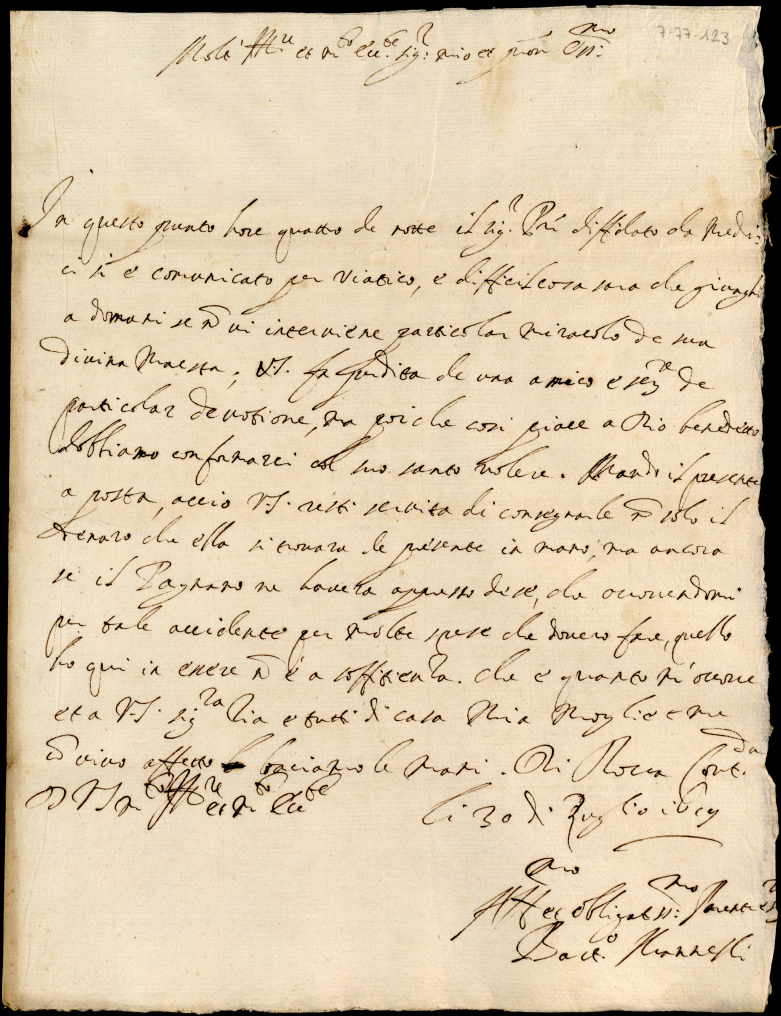 7-77-123
Molt' Ill.re et m.to Ecc.te sig.r mio et p̃ron Oss.mo
In questo punto hore quatto de notte il sig.r Pri diffidato da Medi:
ci si è comunicato per viatico, e difficil cosa sara che giunghi
a domani se nõ vi interviene particolar miracolo de sua
divina Maesta; V.S. fa perdita de uno amico e ser.re de
particolar devotione, ma poi che cosi piace a Dio benedetto
dobbiamo conformarci col suo santo volere. Mando il presente
a posta, accio V.S. resti servita di consegnarle nõ solo il
denaro che ella si trovara de presente in mano, ma ancora
se il Pagnano ne havera appresso di se, che occorrendomi
per tale accidente per molte spese che dovero fare, quello
ho qui in essere nõ è a soffitienza. che è quanto m'occorre
et a V.S. sig.ra Zia e tutti di casa Mia Moglie e me
cõ vivo affetto baciamo le mani. Di Rocca Cont.da
D V S m.to Ill.re et m.to Ecc.te
li 30 di Luglio 1619
Aff.mo et obligatiss:mo Parente e s.r
Bart.o Mannelli